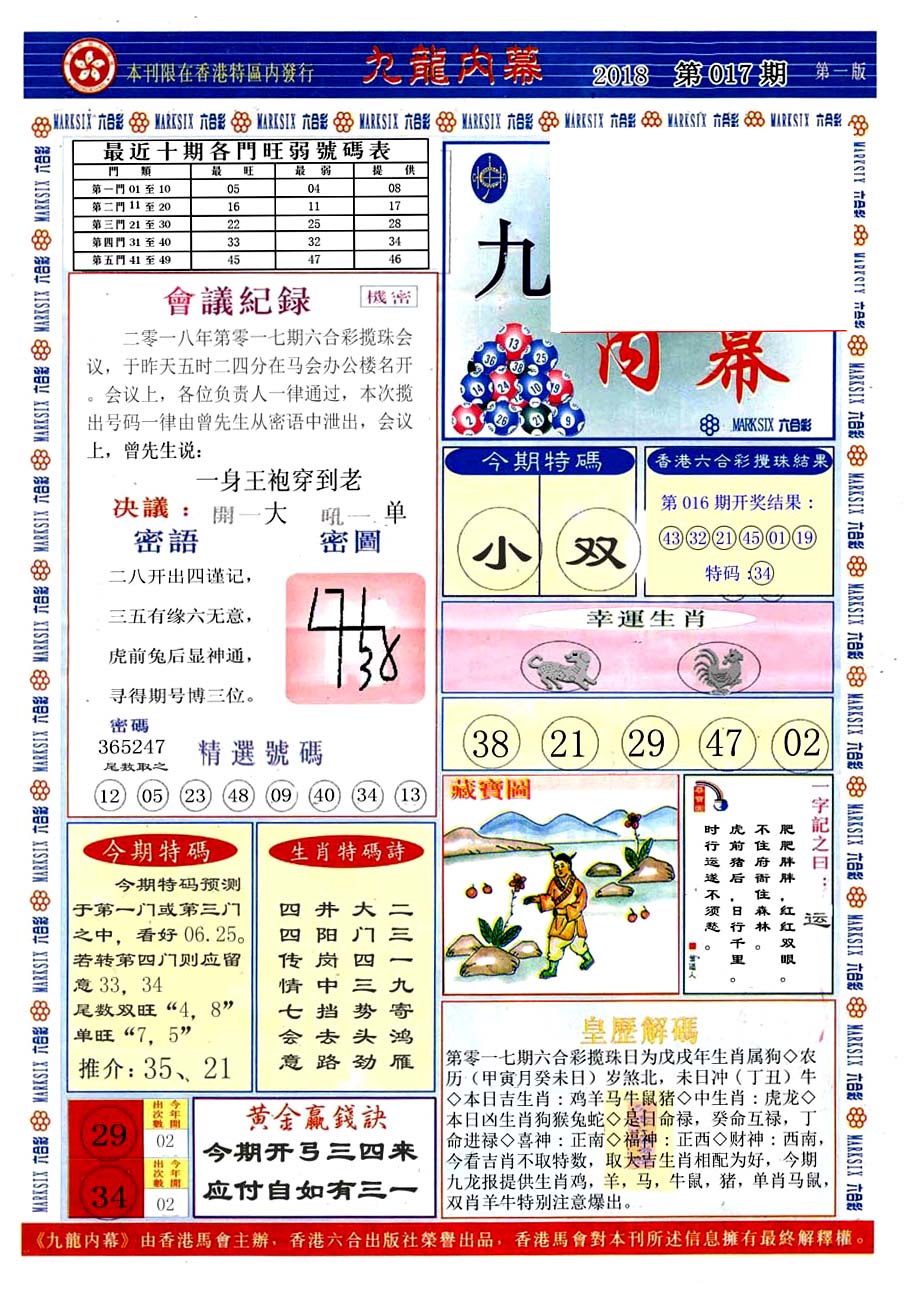 本刊限在香港特區内發行
九龍内幕
2018 第017期
第一版
MARKSIX 六合彩 MARKSIX 六合彩 MARKSIX 六合彩 MARKSIX 六合彩 MARKSIX 六合彩 MARKSIX 六合彩 MARKSIX 六合彩 MARKSIX 六合彩
最近十期各門旺弱號碼表
門類 最旺 最弱 提供
第一門 01 至 10 05 04 08
第二門 11 至 20 16 11 17
第三門 21 至 30 22 25 28
第四門 31 至 40 33 32 34
第五門 41 至 49 45 47 46
會議紀録
機密
二零一八年第零一七期六合彩揽珠会
议，于昨天五时二四分在马会办公楼名开
。会议上，各位负责人一律通过，本次揽
出号码一律由曾先生从密语中泄出，会议
上，曾先生说：
一身王袍穿到老
决議：開一大 吼一单
密語
密圖
二八开出四谨记，
三五有缘六无意，
虎前兔后显神通，
寻得期号博三位。
密碼
365247
尾数取之
精選號碼
12 05 23 48 09 40 34 13
九
内幕
13
36 25
38
14 24 10 19
2 26 21 9
MARKSIX 六合彩
今期特碼
小 双
香港六合彩攪珠結果
第 016 期开奖结果：
43 32 21 45 01 19
特码：34
幸運生肖
38 21 29 47 02
藏寶圖
一字記之曰：运
肥肥胖胖，红红双眼。
不住府衙住森林。
虎前猪后，日行千里。
时行运遂不须愁。
曾道人
今期特碼
今期特码预测
于第一门或第三门
之中，看好 06.25。
若转第四门则应留
意 33，34
尾数双旺“4，8”
单旺“7，5”
推介：35、21
生肖特碼詩
二三一九寄鸿雁
大门四三势头劲
井阳岗中挡去路
四四传情七会意
29 今年開出次數 02
34 今年開出次數 02
黄金贏錢訣
今期开弓三四来
应付自如有三一
皇歷解碼
第零一七期六合彩揽珠日为戊戌年生肖属狗◇农
历（甲寅月癸未日）岁煞北，未日冲（丁丑）牛
◇本日吉生肖：鸡羊马牛鼠猪◇中生肖：虎龙◇
本日凶生肖狗猴兔蛇◇是日命禄，癸命互禄，丁
命进禄◇喜神：正南◇福神：正西◇财神：西南，
今看吉肖不取特数，取大吉生肖相配为好，今期
九龙报提供生肖鸡，羊，马，牛鼠，猪，单肖马鼠，
双肖羊牛特别注意爆出。
《九龍内幕》由香港馬會主辦，香港六合出版社榮譽出品，香港馬會對本刊所述信息擁有最終解釋權。